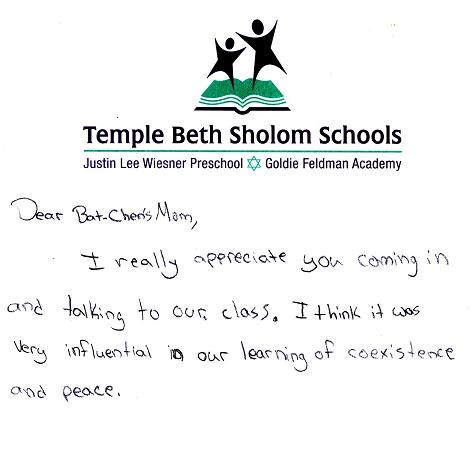 Temple Beth Sholom Schools
Justin Lee Wiesner Preschool ✡ Goldie Feldman Academy
Dear Bat-Chen's Mom,
I really appreciate you coming in
and talking to our class. I think it was
very influential in our learning of coexistence
and peace.